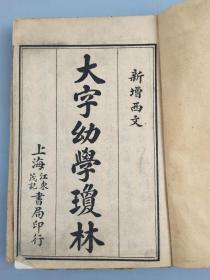 新增西文
大字幼學瓊林
上海江東茂記書局印行